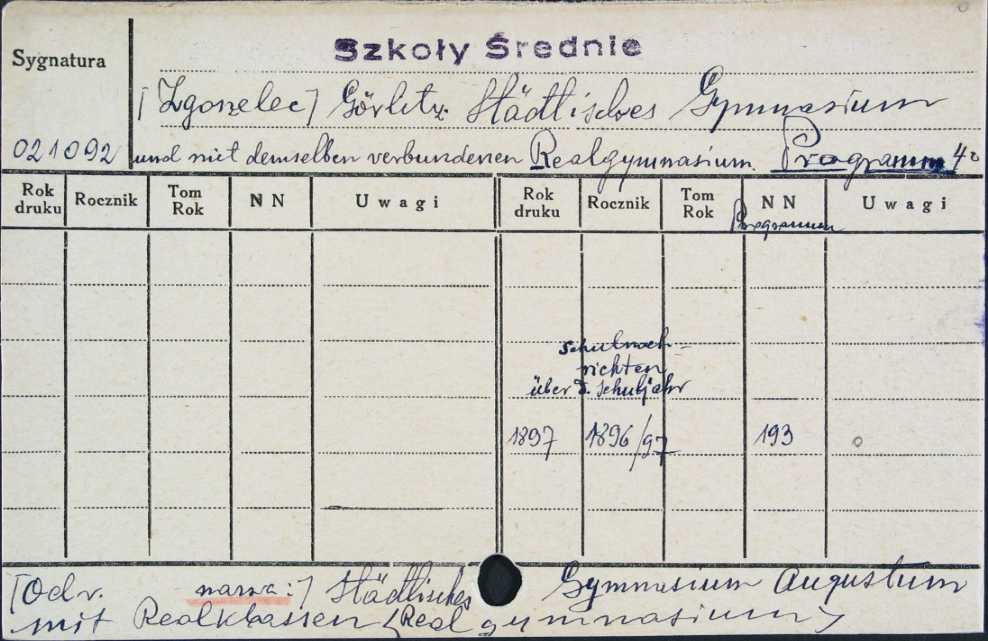 Szkoły Średnie
Sygnatura
[Zgorzelec] Görlitz. Städtisches Gymnasium
021092 und mit demselben verbundenen Realgymnasium. Programm 4°
Rok druku Rocznik Tom Rok NN Uwagi Rok druku Rocznik Tom Rok NN Uwagi
Programm
Schulnach-
richten
über d. Schuljahr
1897 1896/97 193
[Od r. nazwa:] Städtisches Gymnasium Augustum
mit Realklassen (Realgymnasium)